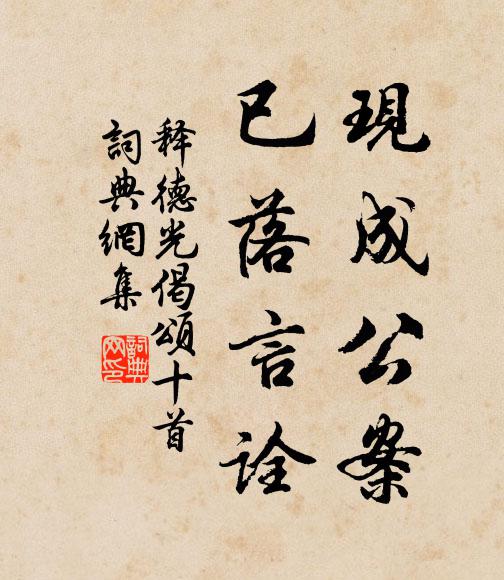 現成公案
已落言詮
释德光偈頌十首
詞典網集
詞典網印